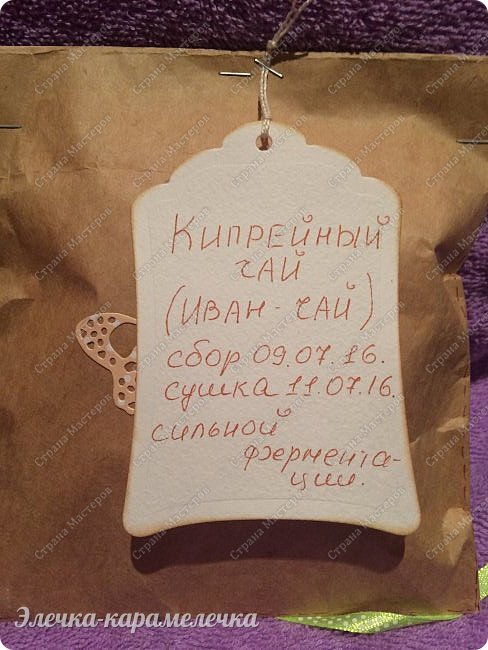 КИПРЕЙНЫЙ
ЧАЙ
(ИВАН-ЧАЙ)
сбор 09.07.16.
сушка 11.07.16.
сильной
фермента-
ции.
Элечка-карамелечка
Страна Мастеров